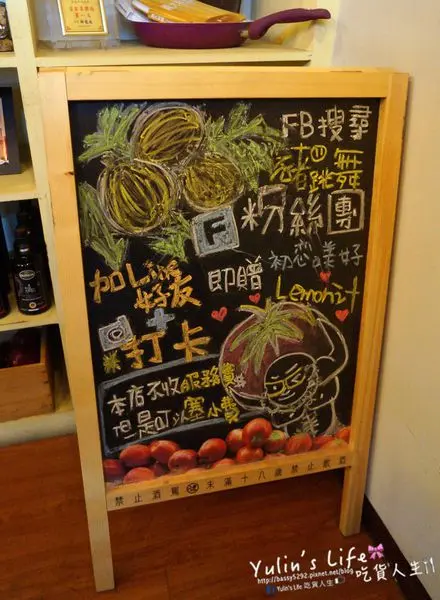 FB搜尋
跳舞
F 粉絲團
初戀美好
加Line好友
即贈
Lemon汁
+
打卡
本店不收服務費
但是可以塞小費
禁止酒駕 未滿十八歲禁止飲酒
Yulin's Life
吃貨人生!!
http://bassy5292.pixnet.net/blog
Yulin's Life 吃貨人生